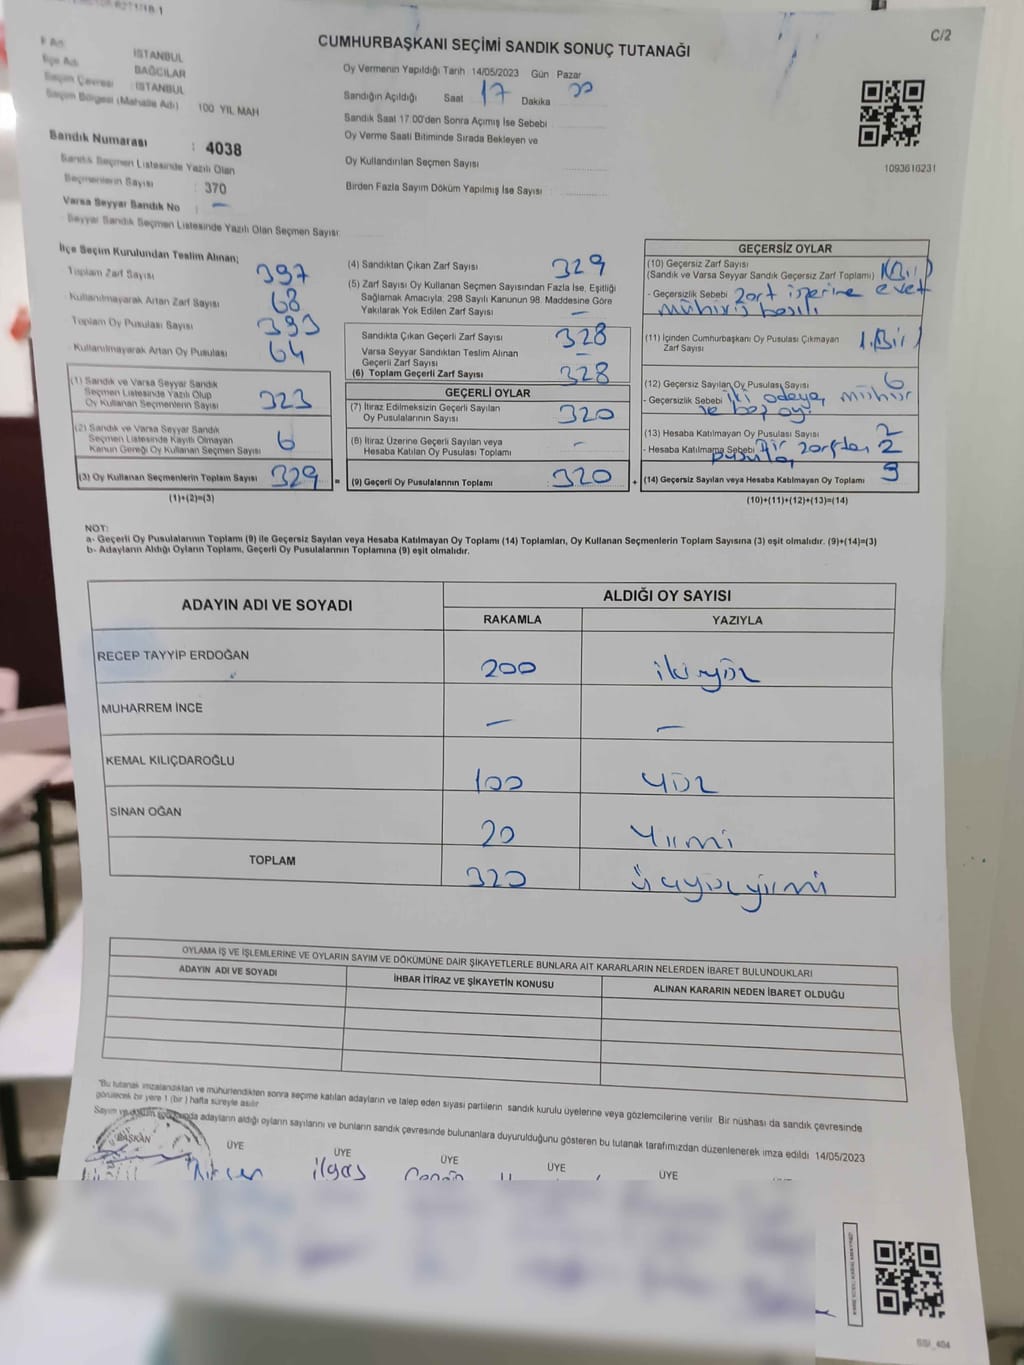 C/2
CUMHURBAŞKANI SEÇİMİ SANDIK SONUÇ TUTANAĞI
İl Adı İSTANBUL
İlçe Adı BAĞCILAR
Seçim Çevresi : İSTANBUL
Seçim Bölgesi (Mahalle Adı) 100 YIL MAH
Sandık Numarası : 4038
Sandık Seçmen Listesinde Yazılı Olan
Seçmenlerin Sayısı : 370
Varsa Seyyar Sandık No —
Seyyar Sandık Seçmen Listesinde Yazılı Olan Seçmen Sayısı:
Oy Vermenin Yapıldığı Tarih 14/05/2023 Gün Pazar
Sandığın Açıldığı Saat 17 Dakika 00
Sandık Saat 17:00'den Sonra Açımış İse Sebebi
Oy Verme Saati Bitiminde Sırada Bekleyen ve
Oy Kullandırılan Seçmen Sayısı
Birden Fazla Sayım Döküm Yapılmış İse Sayısı
1093616231
İlçe Seçim Kurulundan Teslim Alınan;
Toplam Zarf Sayısı 397
Kullanılmayarak Artan Zarf Sayısı 68
Toplam Oy Pusulası Sayısı 393
Kullanılmayarak Artan Oy Pusulası 64
(1) Sandık ve Varsa Seyyar Sandık
Seçmen Listesinde Yazılı Olup
Oy Kullanan Seçmenlerin Sayısı 323
(2) Sandık ve Varsa Seyyar Sandık
Seçmen Listesinde Kayıtlı Olmayan
Kanun Gereği Oy Kullanan Seçmen Sayısı 6
(3) Oy Kullanan Seçmenlerin Toplam Sayısı 329 =
(1)+(2)=(3)
(4) Sandıktan Çıkan Zarf Sayısı 329
(5) Zarf Sayısı Oy Kullanan Seçmen Sayısından Fazla İse, Eşitliği
Sağlamak Amacıyla; 298 Sayılı Kanunun 98. Maddesine Göre
Yakılarak Yok Edilen Zarf Sayısı —
Sandıkta Çıkan Geçerli Zarf Sayısı 328
Varsa Seyyar Sandıktan Teslim Alınan
Geçerli Zarf Sayısı —
(6) Toplam Geçerli Zarf Sayısı 328
GEÇERLİ OYLAR
(7) İtiraz Edilmeksizin Geçerli Sayılan
Oy Pusulalarının Sayısı 320
(8) İtiraz Üzerine Geçerli Sayılan veya
Hesaba Katılan Oy Pusulası Toplamı -
(9) Geçerli Oy Pusulalarının Toplamı : 320 +
GEÇERSİZ OYLAR
(10) Geçersiz Zarf Sayısı
(Sandık ve Varsa Seyyar Sandık Geçersiz Zarf Toplamı) 1(Bir)
- Geçersizlik Sebebi zarf üzerine evet
mührü basılı
(11) İçinden Cumhurbaşkanı Oy Pusulası Çıkmayan
Zarf Sayısı 1(Bir)
(12) Geçersiz Sayılan Oy Pusulası Sayısı 6
- Geçersizlik Sebebi iki adaya mühür
ve boş oy
(13) Hesaba Katılmayan Oy Pusulası Sayısı 2
- Hesaba Katılmama Sebebi Bir zarftan 2
pusula
(14) Geçersiz Sayılan veya Hesaba Katılmayan Oy Toplamı 9
(10)+(11)+(12)+(13)=(14)
NOT:
a- Geçerli Oy Pusulalarının Toplamı (9) ile Geçersiz Sayılan veya Hesaba Katılmayan Oy Toplamı (14) Toplamları, Oy Kullanan Seçmenlerin Toplam Sayısına (3) eşit olmalıdır. (9)+(14)=(3)
b- Adayların Aldığı Oyların Toplamı, Geçerli Oy Pusulalarının Toplamına (9) eşit olmalıdır.
ADAYIN ADI VE SOYADI ALDIĞI OY SAYISI
RAKAMLA YAZIYLA
RECEP TAYYİP ERDOĞAN 200 ikiyüz
MUHARREM İNCE — —
KEMAL KILIÇDAROĞLU 100 yüz
SİNAN OĞAN 20 Yirmi
TOPLAM 320 üçyüzyirmi
OYLAMA İŞ VE İŞLEMLERİNE VE OYLARIN SAYIM VE DÖKÜMÜNE DAİR ŞİKAYETLERLE BUNLARA AİT KARARLARIN NELERDEN İBARET BULUNDUKLARI
ADAYIN ADI VE SOYADI İHBAR İTİRAZ VE ŞİKAYETİN KONUSU ALINAN KARARIN NEDEN İBARET OLDUĞU
"Bu tutanak imzalandıktan ve mühürlendikten sonra seçime katılan adayların ve talep eden siyasi partilerin sandık kurulu üyelerine veya gözlemcilerine verilir. Bir nüshası da sandık çevresinde
görülecek bir yere 1 (bir) hafta süreyle asılır
Sayım ve adayların aldığı oyların sayılarını ve bunların sandık çevresinde bulunanlara duyurulduğunu gösteren bu tutanak tarafımızdan düzenlenerek imza edildi 14/05/2023
BAŞKAN ÜYE ÜYE ÜYE ÜYE ÜYE
ilgas